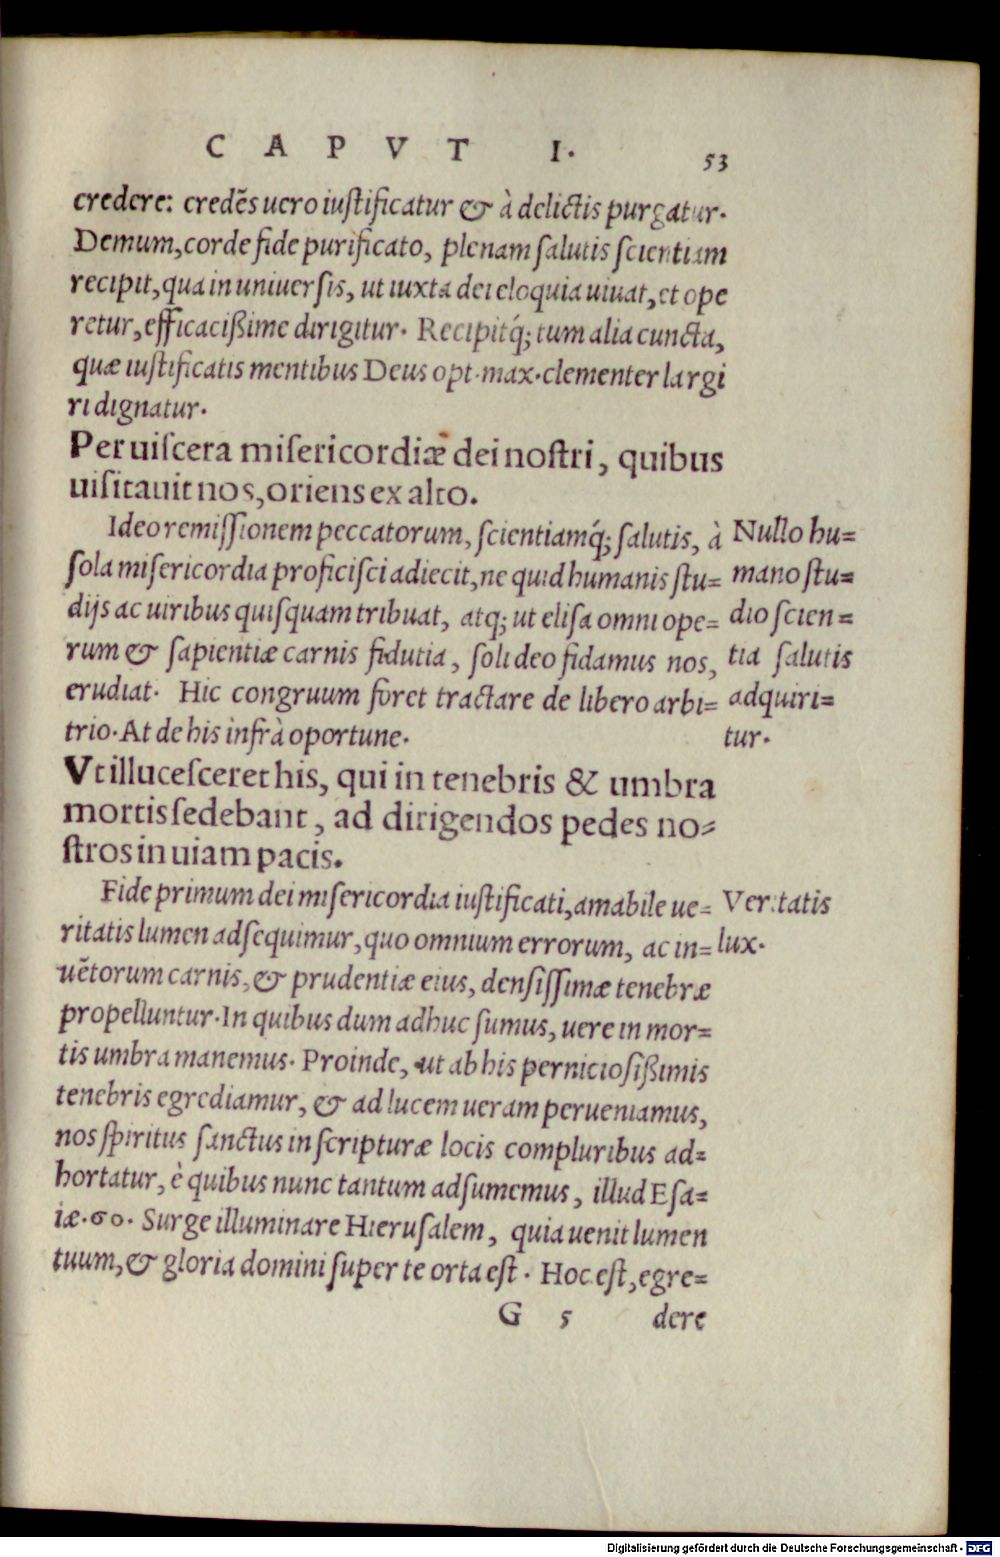 CAPVT I. 53
credere: credēs uero iustificatur & à delictis purgatur.
Demum, corde fide purificato, plenam salutis scientiam
recipit, qua in uniuersis, ut iuxta dei eloquia uiuat, et ope
retur, efficacißime dirigitur. Recipitq́; tum alia cuncta,
quæ iustificatis mentibus Deus opt. max. clementer largi
ri dignatur.
Per uiscera misericordiæ dei nostri, quibus
uisitauit nos, oriens ex alto.
Ideo remissionem peccatorum, scientiamq́; salutis, à
sola misericordia proficisci adiecit, ne quid humanis stu=
dijs ac uiribus quisquam tribuat, atq; ut elisa omni ope=
rum & sapientiæ carnis fidutia, soli deo fidamus nos,
erudiat. Hic congruum foret tractare de libero arbi=
trio. At de his infrà oportune.
Nullo hu=
mano stu=
dio scien=
tia salutis
adquiri=
tur.
Vt illucesceret his, qui in tenebris & umbra
mortis sedebant, ad dirigendos pedes no=
stros in uiam pacis.
Fide primum dei misericordia iustificati, amabile ue=
ritatis lumen adsequimur, quo omnium errorum, ac in=
uētorum carnis, & prudentiæ eius, densissimæ tenebræ
propelluntur. In quibus dum adhuc sumus, uere in mor=
tis umbra manemus. Proinde, ut ab his perniciosißimis
tenebris egrediamur, & ad lucem ueram perueniamus,
nos spiritus sanctus in scripturæ locis compluribus ad=
hortatur, è quibus nunc tantum adsumemus, illud Esa=
iæ. 60. Surge illuminare Hierusalem, quia uenit lumen
tuum, & gloria domini super te orta est. Hoc est, egre=
Veritatis
lux.
G 5 dere
Digitalisierung gefördert durch die Deutsche Forschungsgemeinschaft - DFG